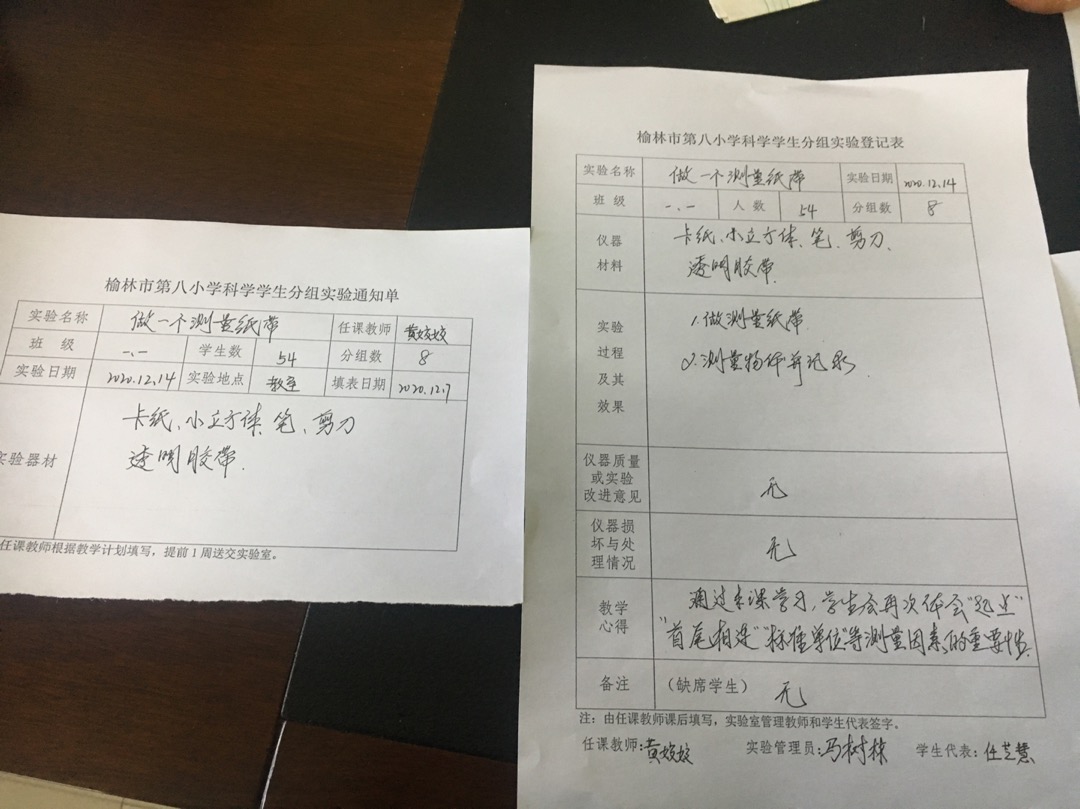 榆林市第八小学科学学生分组实验通知单
实验名称 做一个测量纸带 任课教师 黄姣姣
班 级 一.一 学生数 54 分组数 8
实验日期 2020.12.14 实验地点 教室 填表日期 2020.12.7
实验器材 卡纸、小立方体、笔、剪刀
透明胶带.
任课教师根据教学计划填写，提前1周送交实验室。
榆林市第八小学科学学生分组实验登记表
实验名称 做一个测量纸带 实验日期 2020.12.14
班 级 一.一 人 数 54 分组数 8
仪器 卡纸、小立方体、笔、剪刀、
材料 透明胶带.
实验 1.做测量纸带.
过程 2.测量物体并记录.
及其
效果
仪器质量
或实验 无
改进意见
仪器损
坏与处 无
理情况
教学 通过本课学习，学生会再次体会"起点"
心得 "首尾相连""标准单位"等测量因素的重要性.
备注 （缺席学生） 无
注：由任课教师课后填写，实验室管理教师和学生代表签字。
任课教师:黄姣姣 实验管理员:冯树林 学生代表:任芝慧